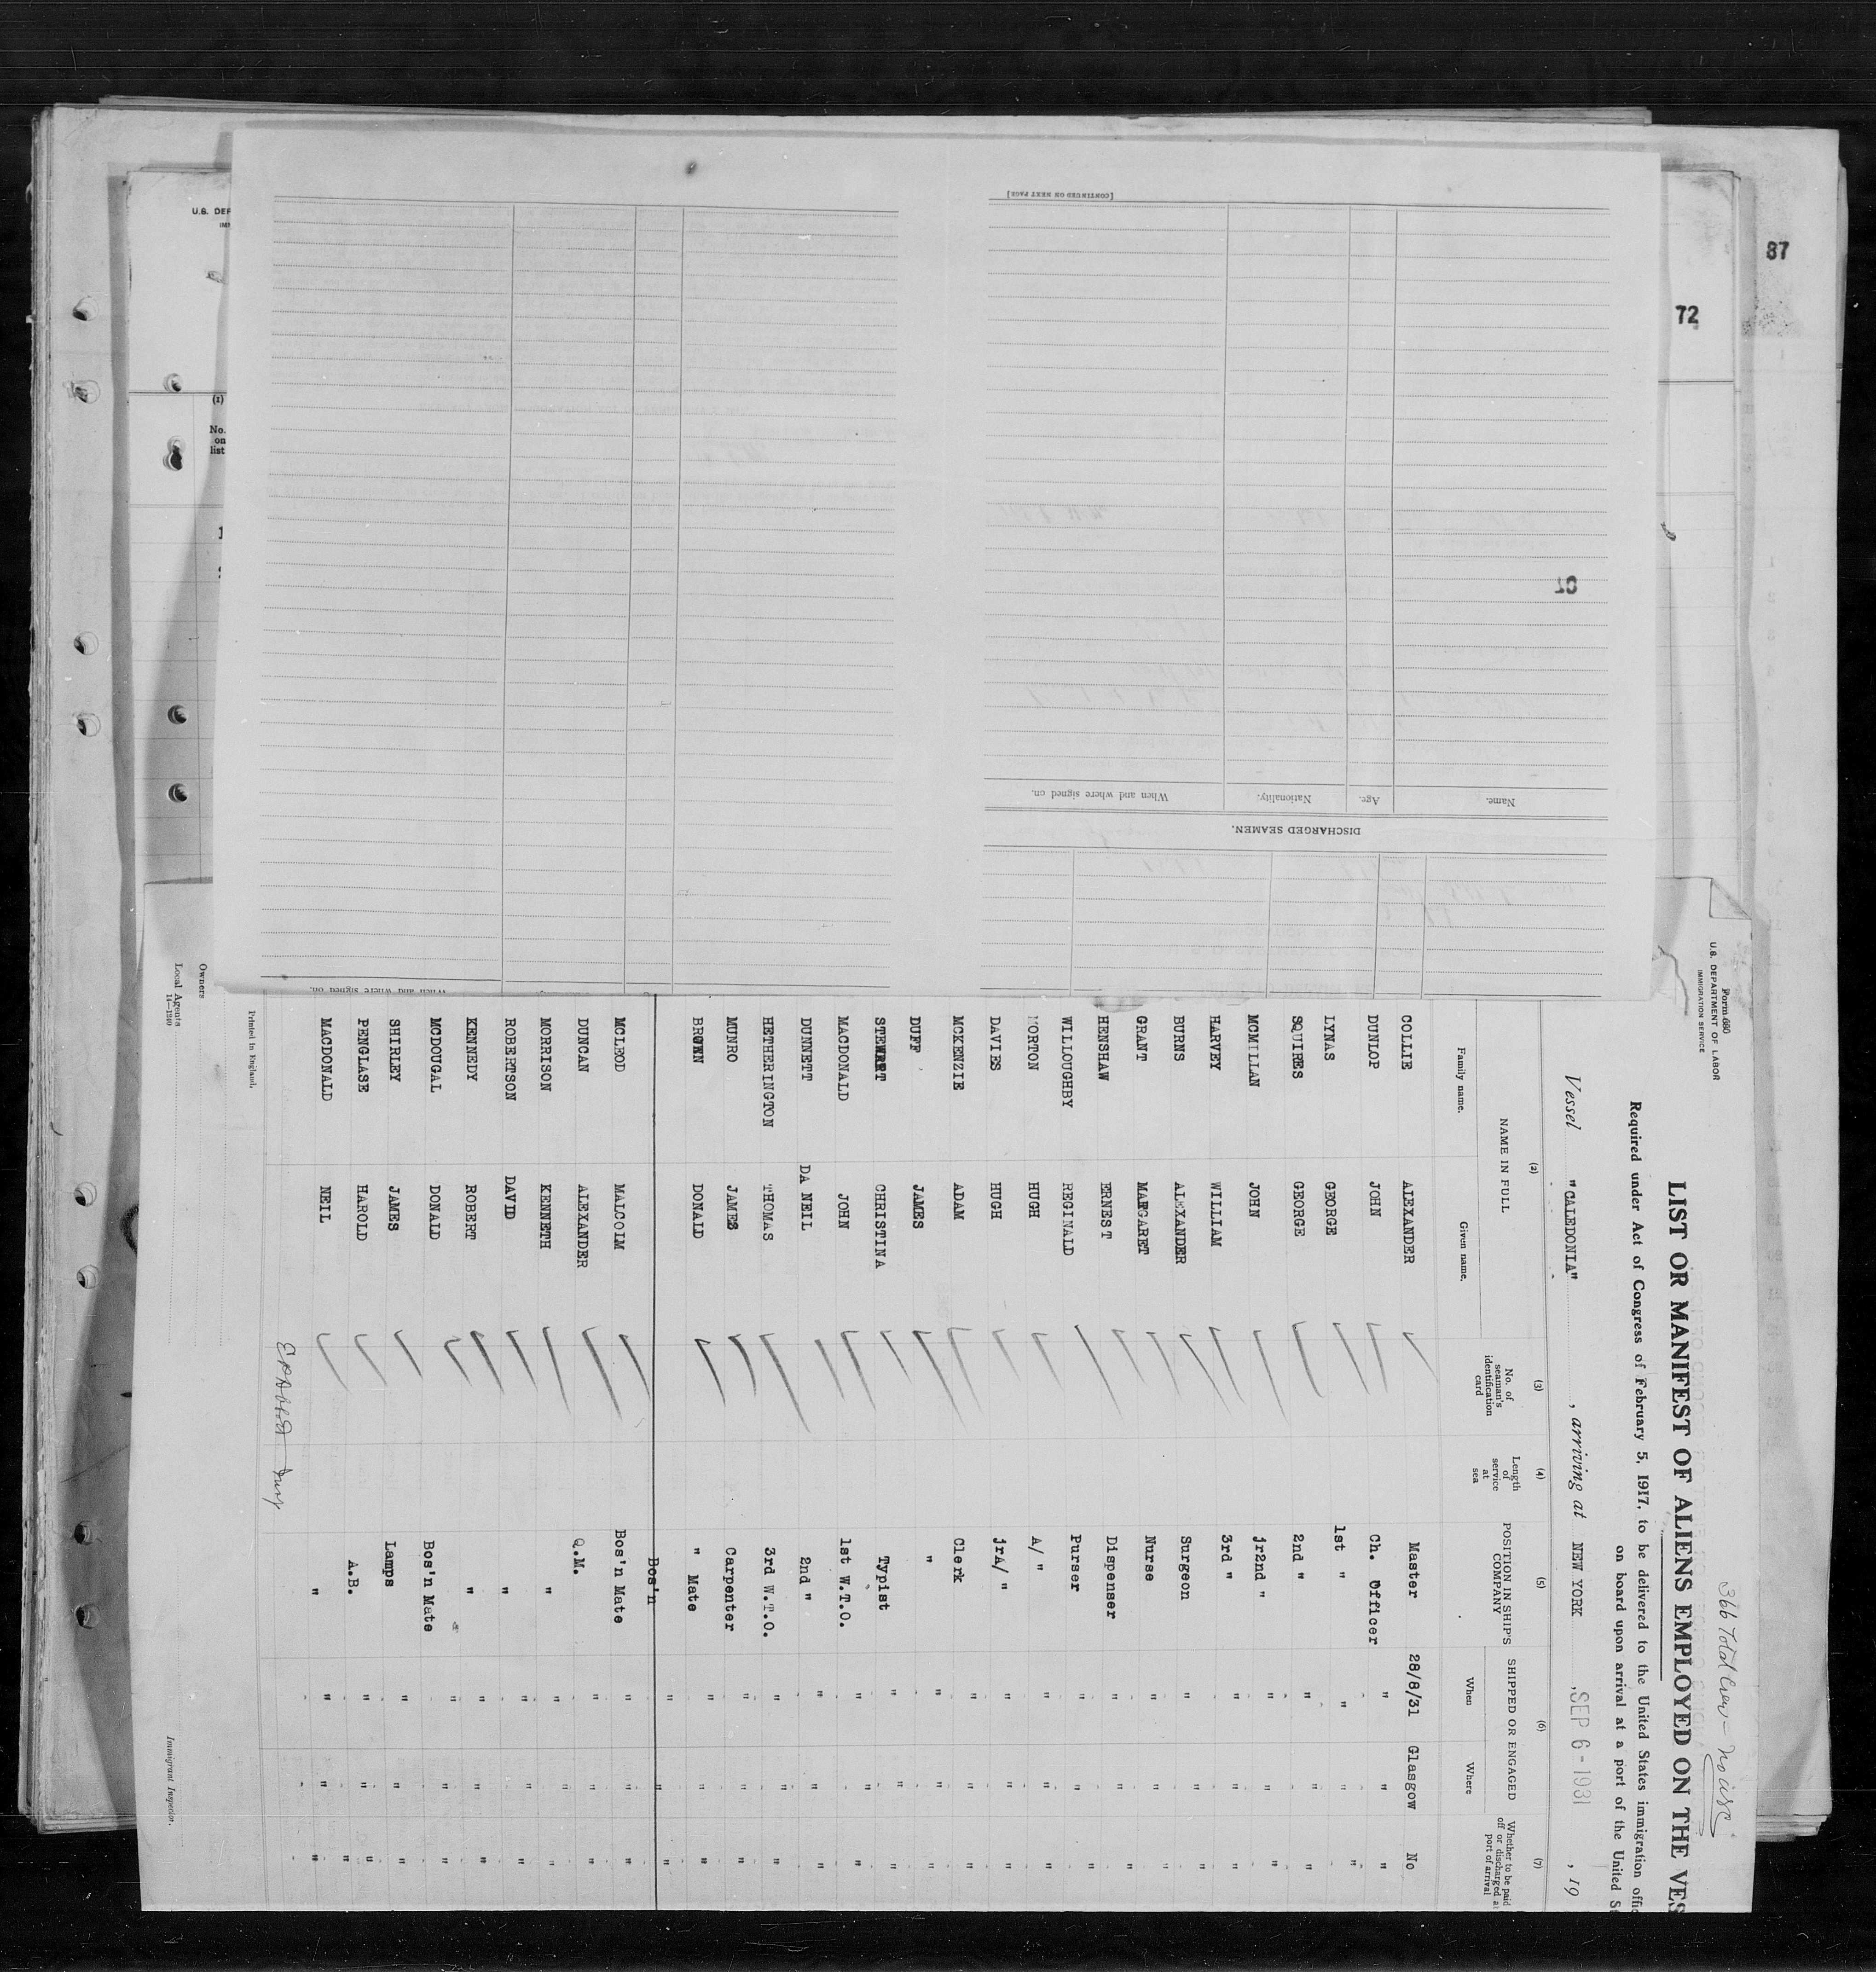 87
72
U.S. DEP
IMM
(1)
No.
on
list
[CONTINUED ON NEXT PAGE]
Name.
Age.
Nationality.
When and where signed on.
DISCHARGED SEAMEN.
When and where signed on.
Form 680
U.S. DEPARTMENT OF LABOR
IMMIGRATION SERVICE
366 Total Crew -
LIST OR MANIFEST OF ALIENS EMPLOYED ON THE VES
Required under Act of Congress of February 5, 1917, to be delivered to the United States immigration offic
on board upon arrival at a port of the United St
Vessel "CALEDONIA" , arriving at NEW YORK , SEP 6-1931 , 19
(2) (3) (4) (5) (6) (7)
NAME IN FULL
Family name. Given name.
No. of seaman's identification card
Length of service at sea
POSITION IN SHIP'S COMPANY
SHIPPED OR ENGAGED
When Where
Whether to be paid off or discharged at port of arrival
COLLIE ALEXANDER Master 28/8/31 Glasgow No
DUNLOP JOHN Ch. Officer " " "
LYNAS GEORGE 1st " " " "
SQUIRES GEORGE 2nd " " " "
MCMILLAN JOHN jr2nd " " " "
HARVEY WILLIAM 3rd " " " "
BURNS ALEXANDER Surgeon " " "
GRANT MARGARET Nurse " " "
HENSHAW ERNEST Dispenser " " "
WILLOUGHBY REGINALD Purser " " "
NORTON HUGH A/ " " " "
DAVIES HUGH jrA/ " " " "
MCKENZIE ADAM Clerk " " "
DUFF JAMES " " " "
STEWART CHRISTINA Typist " " "
MACDONALD JOHN 1st W.T.O. " " "
DUNNETT DA NEIL 2nd " " " "
HETHERINGTON THOMAS 3rd W.T.O. " " "
MUNRO JAMES Carpenter " " "
BROWN DONALD " Mate " " "
Bos'n " " "
MCLEOD MALCOLM Bos'n Mate " " "
DUNCAN ALEXANDER Q.M. " " "
MORRISON KENNETH " " " "
ROBERTSON DAVID " " " "
KENNEDY ROBERT " " " "
MCDOUGAL DONALD Bos'n Mate " " "
SHIRLEY JAMES Lamps " " "
PENGLASE HAROLD A.B. " " "
MACDONALD NEIL " " " "
Printed in England.
Owners
Local Agents
14—1240
Immigrant Inspector.